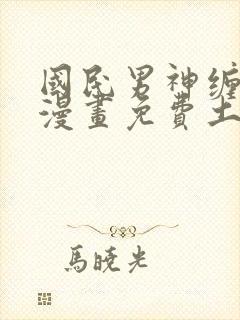 國民男神纏
漫畫免費土
馬曉光